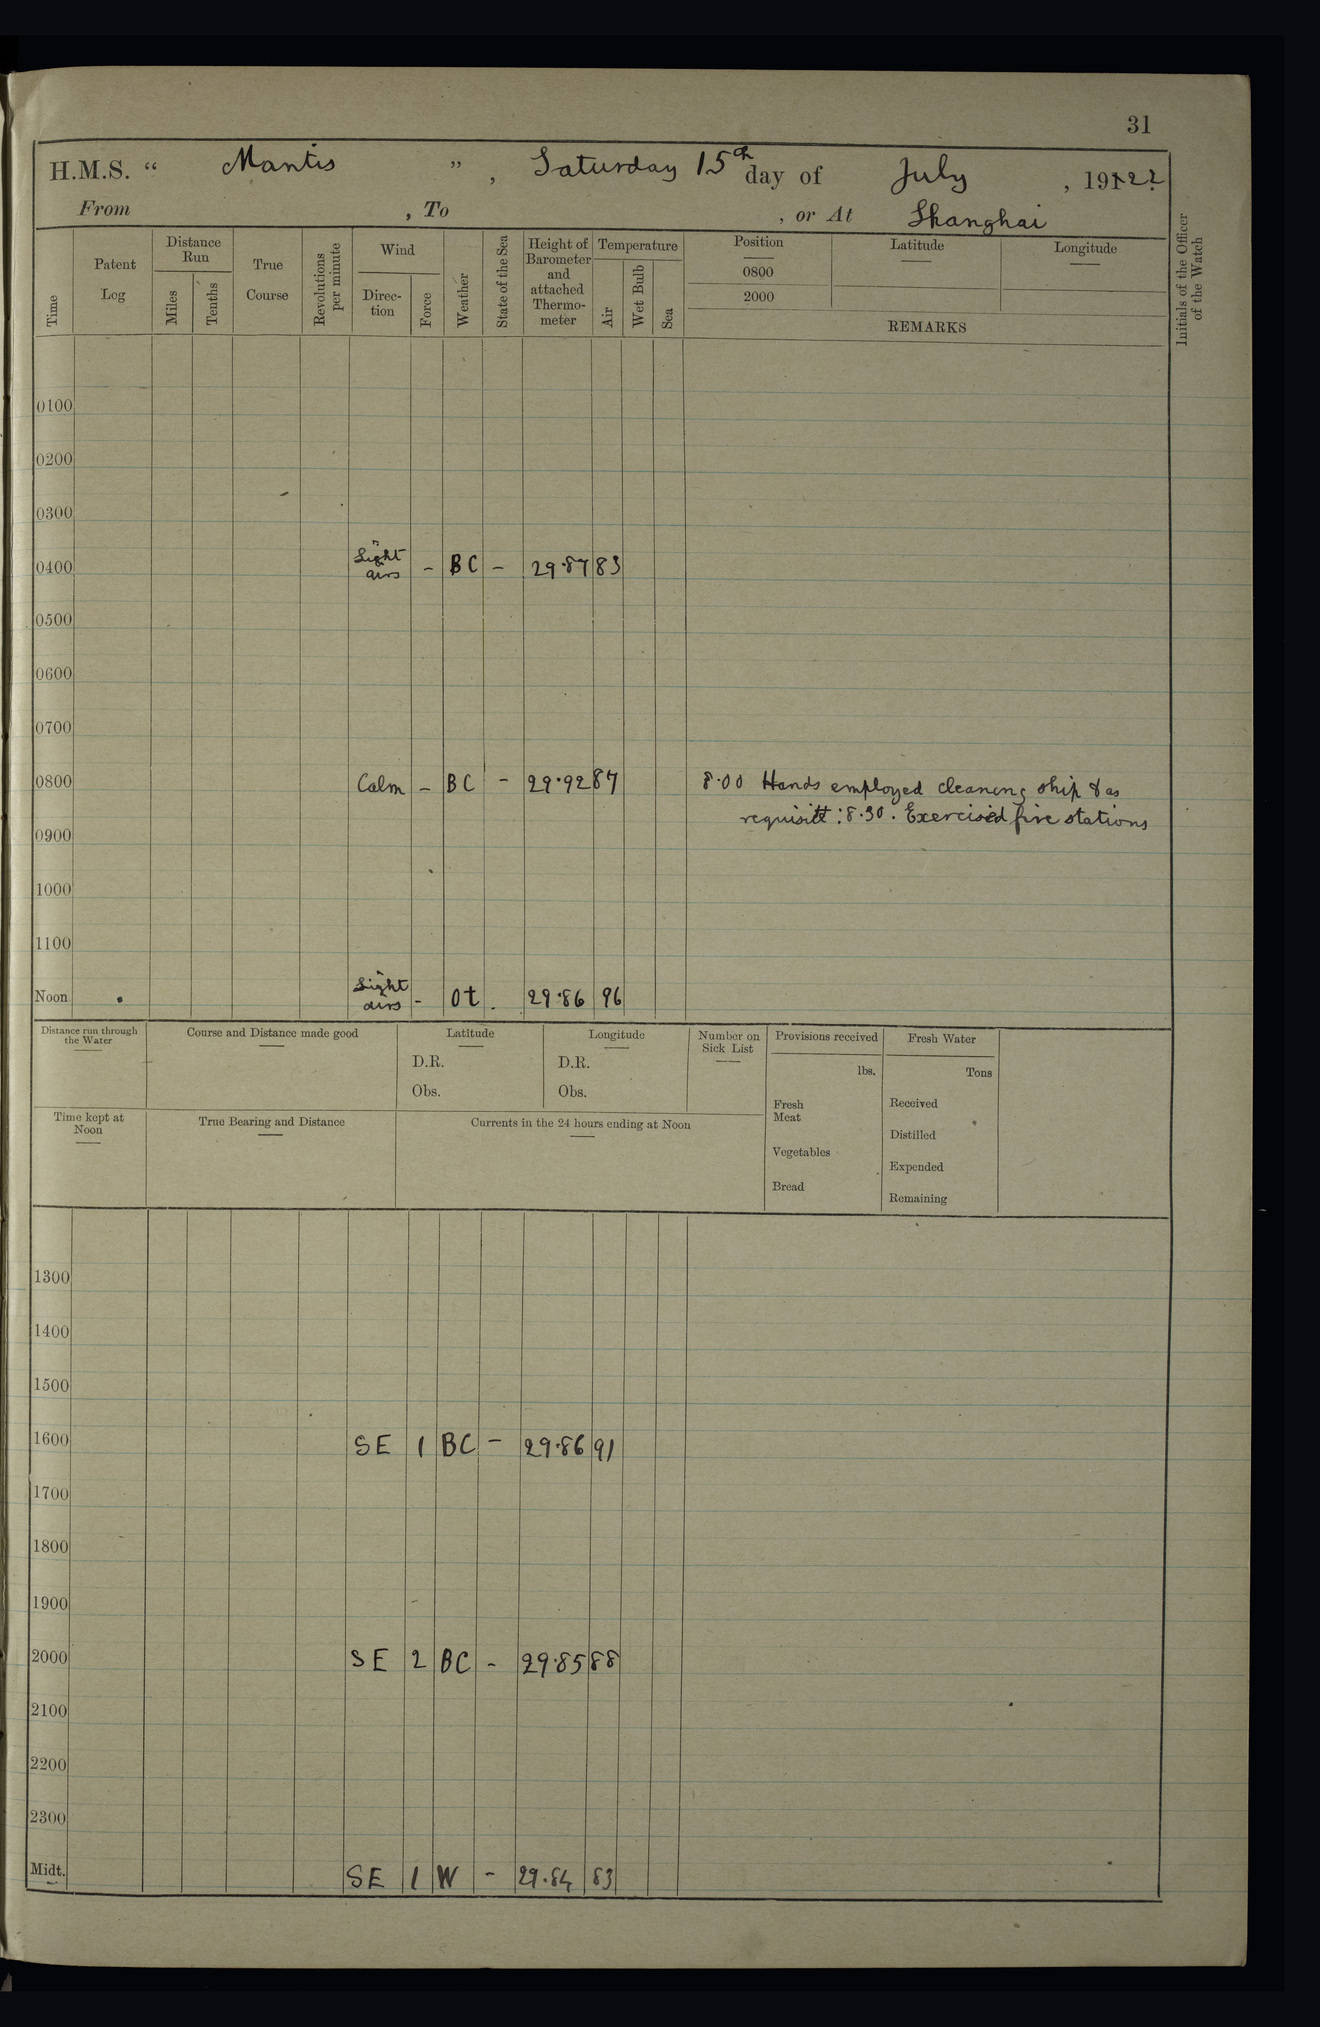 31
H.M.S. “ Mantis ” , Saturday 15th day of July , 1922
From , To , or At Shanghai
Time
Patent Log
Distance Run
Miles
Tenths
True Course
Revolutions per minute
Wind
Direc-tion
Force
Weather
State of the Sea
Height of Barometer and attached Thermo-meter
Temperature
Air
Wet Bulb
Sea
Position
0800
2000
Latitude
Longitude
REMARKS
Initials of the Officer of the Watch
0100
0200
0300
0400 Light airs - BC - 29.87 83
0500
0600
0700
0800 Calm - BC - 29.92 87 8.00 Hands employed cleaning ship & as
requisite : 8.30. Exercised fire stations
0900
1000
1100
Noon Light airs - Ot . 29.86 96
Distance run through the Water
Course and Distance made good
Latitude
D.R.
Obs.
Longitude
D.R.
Obs.
Number on Sick List
Provisions received
lbs.
Fresh Meat
Vegetables
Bread
Fresh Water
Tons
Received
Distilled
Expended
Remaining
Time kept at Noon
True Bearing and Distance
Currents in the 24 hours ending at Noon
1300
1400
1500
1600 SE 1 BC - 29.86 91
1700
1800
1900
2000 SE 2 BC - 29.85 88
2100
2200
2300
Midt. SE 1 W - 29.84 83